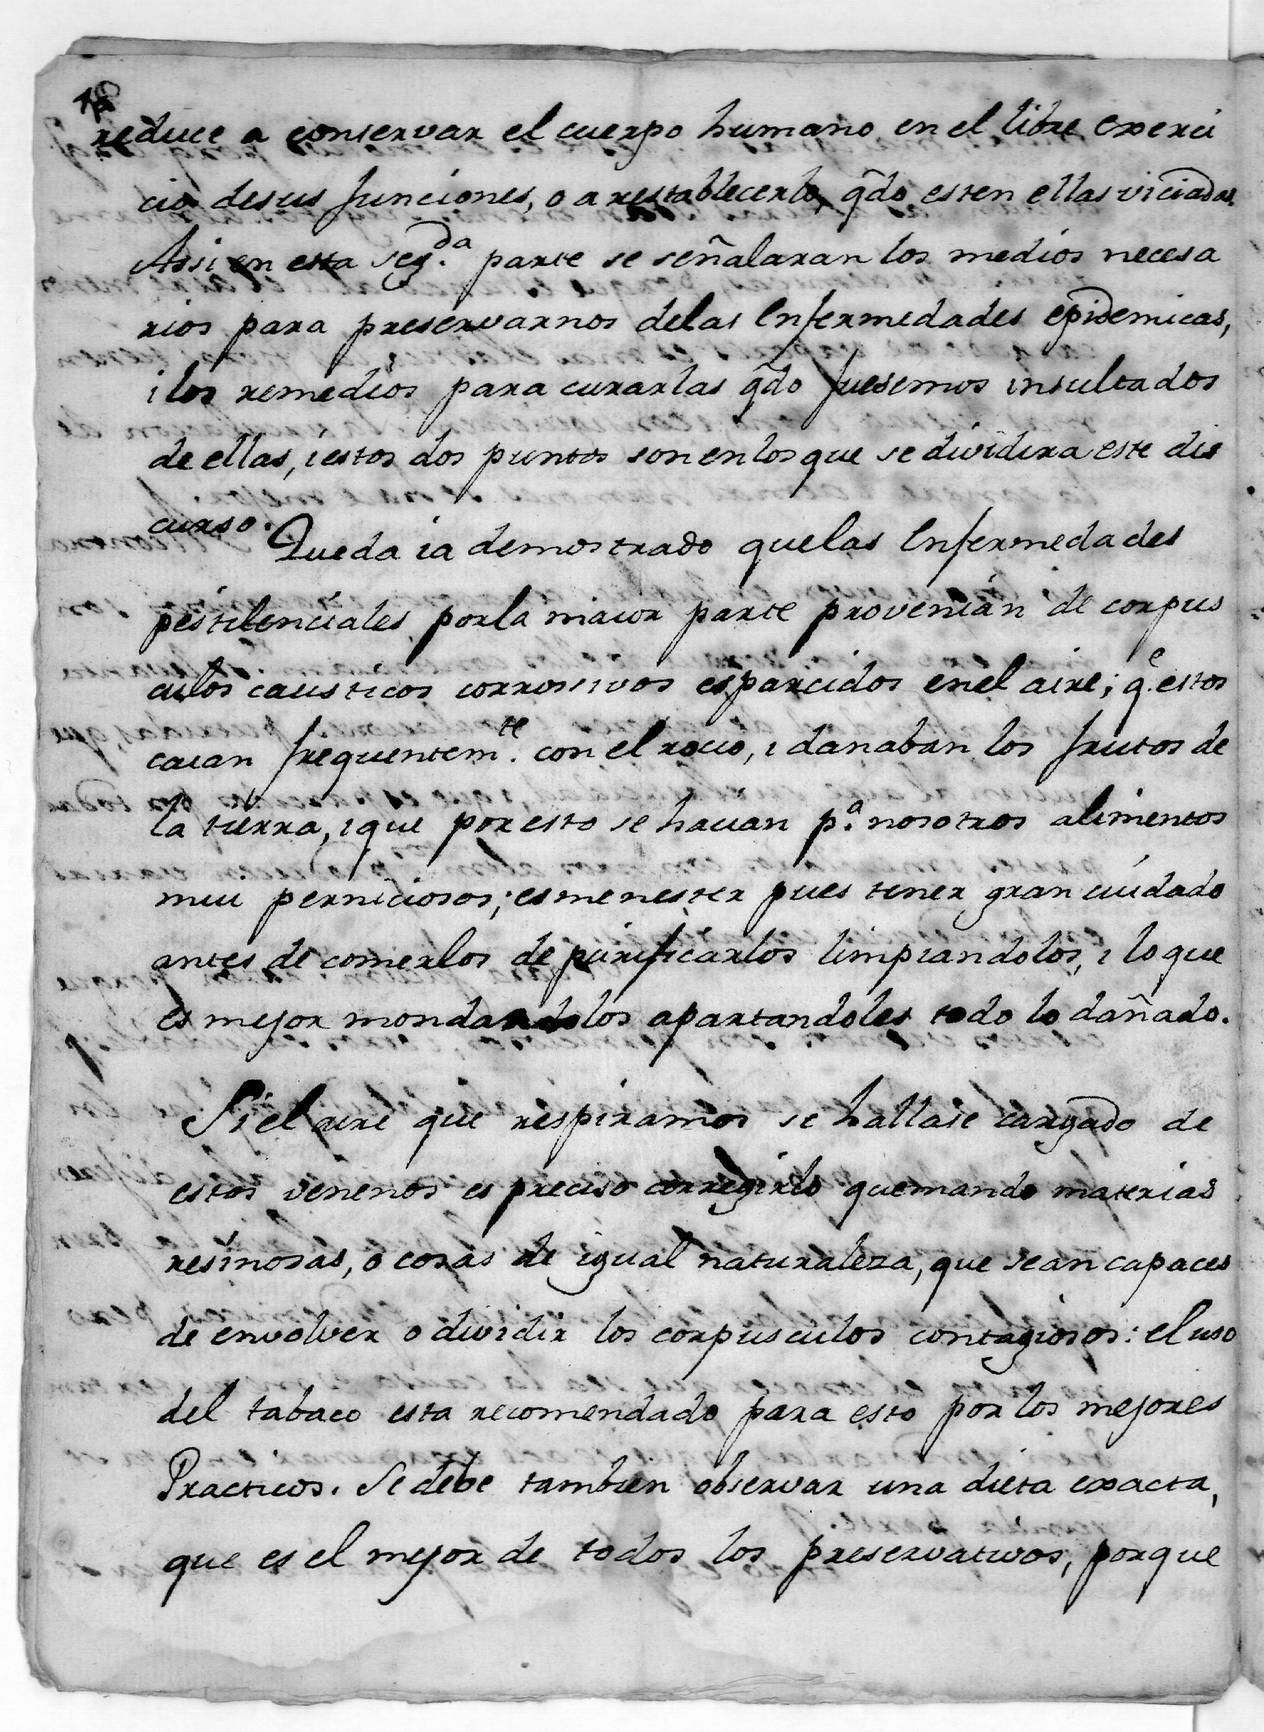 reduce a conservar el cuerpo humano en el libre exerci
cio desus funciones, o a restablecerlo, qdo esten ellas viciadas.
Assi en esta seg.da parte se señalaran los medios necesa
rios para preservarnos delas Enfermedades epidemicas,
i los remedios para curarlas qdo fuesemos insultados
de ellas, i estos dos puntos son en los que se dividira este dis
curso.
Queda ia demostrado que las Enfermedades
pestilenciales por la maior parte provenian de corpus
culos causticos corrosivos esparcidos en el aire; q.e estos
caian frequentem.te con el rocio, i danaban los frutos de
la tierra, i que por esto se hacian p.a nosotros alimentos
mui perniciosos; es menester pues tener gran cuidado
antes de comerlos de purificarlos limpiandolos, i lo que
es mejor mondandolos apartandoles todo lo dañado.
Si el aire que respiramos se hallase cargado de
estos venenos es preciso corregirlo quemando materias
resinosas, o cosas de igual naturaleza, que sean capaces
de envolver o dividir los corpusculos contagiosos: el uso
del tabaco esta recomendado para esto por los mejores
Practicos. Se debe tambien observar una dieta exacta,
que es el mejor de todos los preservativos, porque